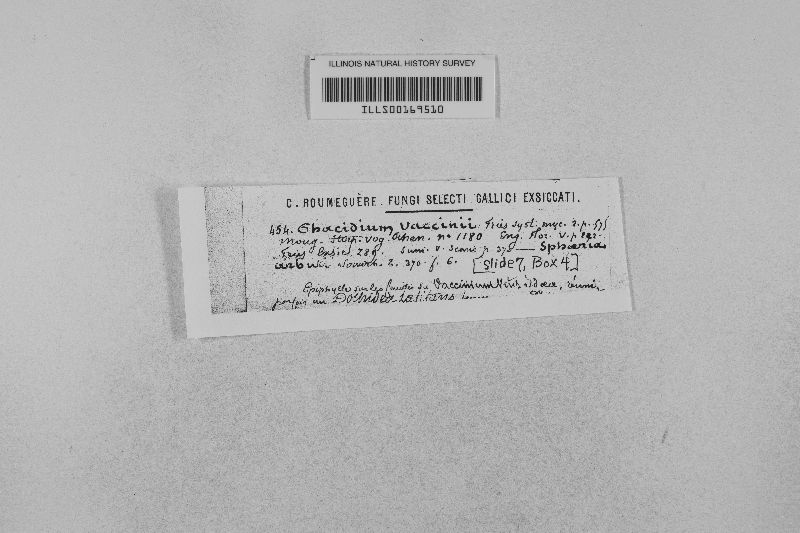 ILLINOIS NATURAL HISTORY SURVEY
ILLS00169510
C. ROUMEGUÈRE. FUNGI SELECTI GALLICI EXSICCATI.
454. Phacidium Vaccinii. Fries syst. myc. 2. p. 575
Moug. Vog. Rhen. nº 1180 Eng. Flor. V. p.
Fries Exsic. 289. Sum. V. Scand p. 370 — Sphaeria
arb 2. 370. f. 6. [Slide 7, Box 4]
Epiphylle sur les feuilles du Vaccinium Vitis idaea, réunie
parfois au Dothidea latitans